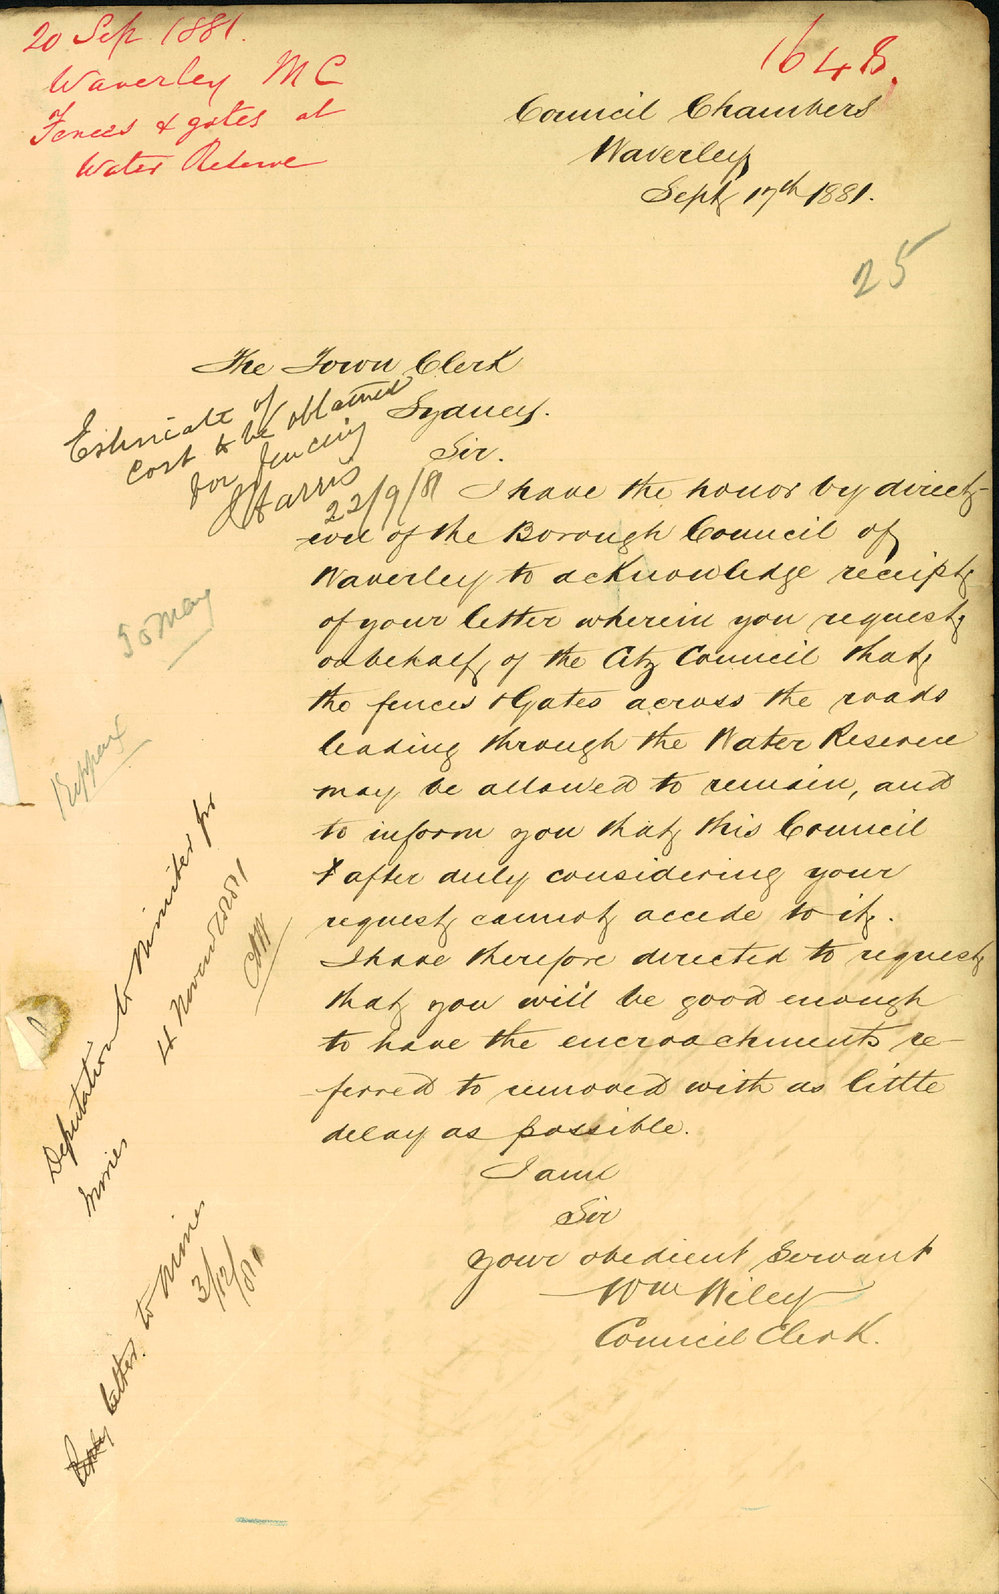 20 Sep 1881.
Waverley M C
Fences & gates at
Water Reserve
1648.
Council Chambers
Waverley
Sept 17th 1881.
25
The Town Clerk
Sydney.
Sir.
Estimate of
cost to be obtained
for fencing
J Harris
22/9/81
I have the honor by direct-
ion of the Borough Council of
Waverley to acknowledge receipt
of your letter wherein you request
on behalf of the City Council that
the fences & Gates across the roads
leading through the Water Reserve
may be allowed to remain, and
to inform you that this Council
& after duly considering your
request cannot accede to it.
I have therefore directed to request
that you will be good enough
to have the encroachments re-
ferred to removed with as little
delay as possible.
I am
Sir
your obedient Servant
Wm Wiley
Council Clerk.
Deputation to Minister for
Mines
4 November 1881
letter to Mines
3/12/81